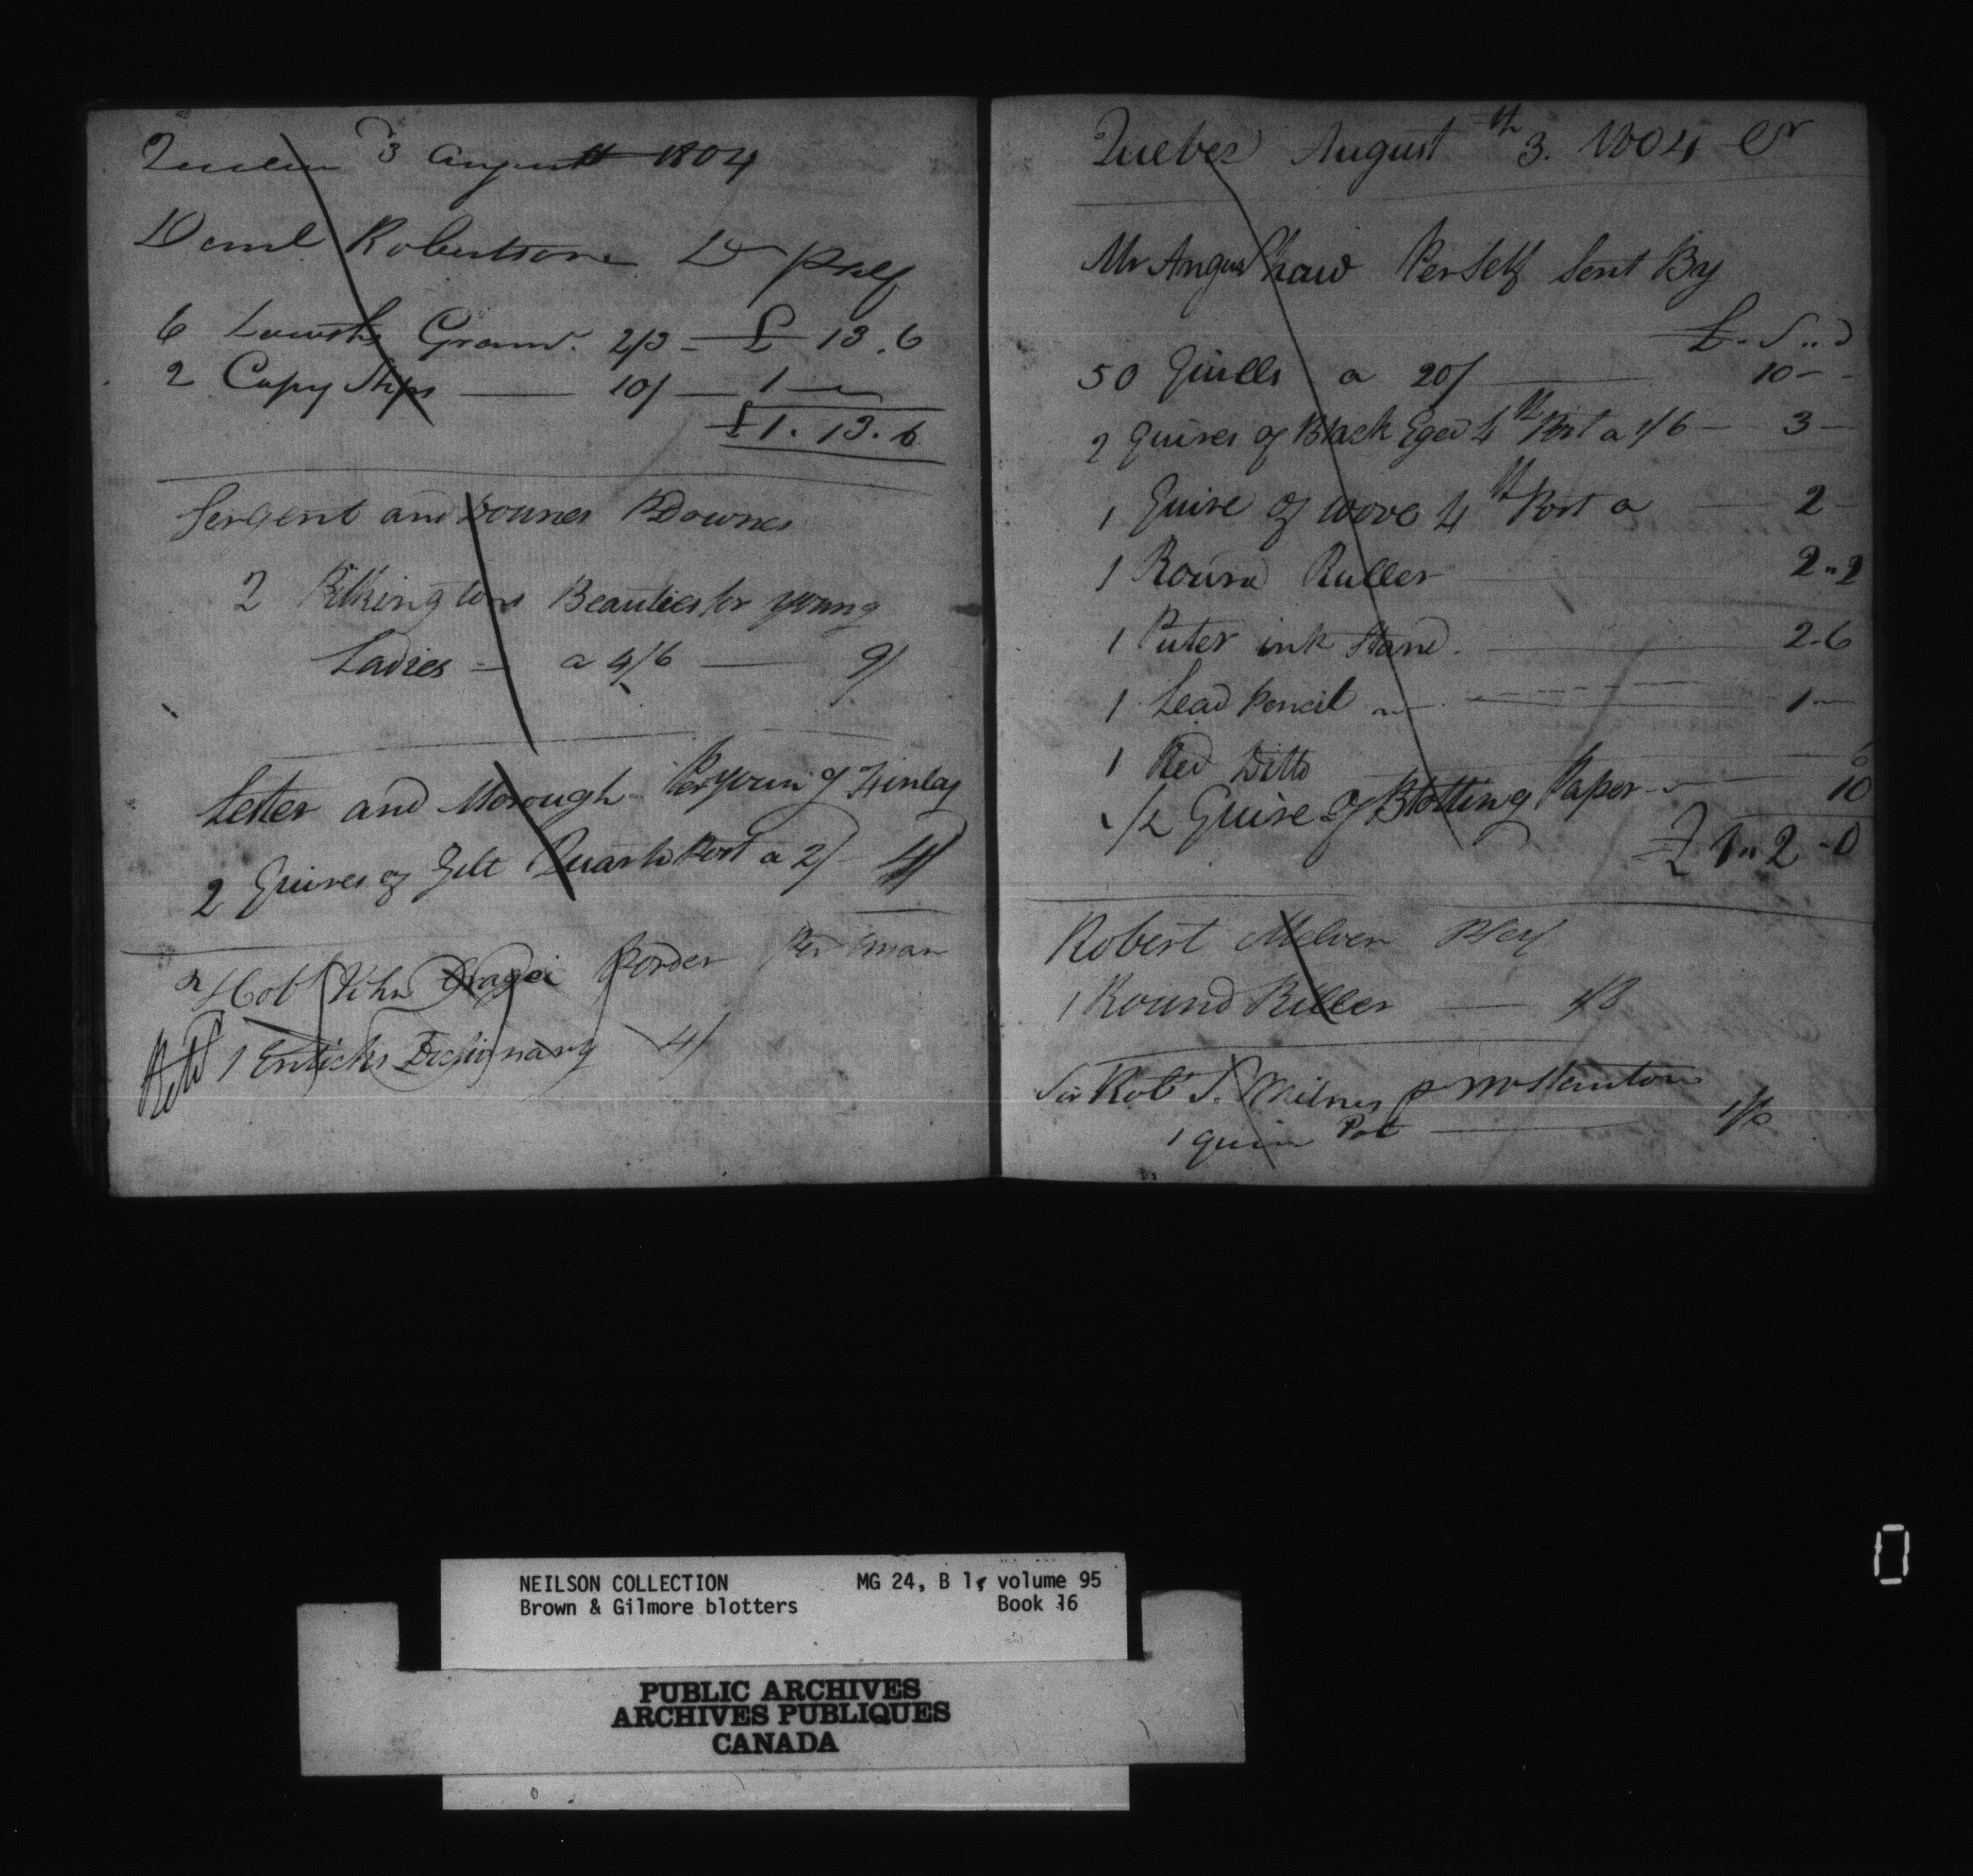 Quebec 3 August 1804
Danl Robertson Dr pself
6 Lowths Gramr. 2/3 - £ 13.6
2 Copy Slips — 10/ — 1 —
£1.13.6
Sergent and Downes P Downes
2 Pilkingtons Beauties for young
Ladies - a 4/6 — 9/
Lester and Morough Per young Finlay
2 Quires of Gilt Quarto Post a 2/ - 4/
Honbl John Porder Per
1 Enticks Dictionary 4/
Quebec August th 3. 1804 Dr
Mr Angus Shaw Per Self Sent By
£. S.. D
50 Quills a 20/ — 10 - -
2 Quires of Black Eged 4th Post a 1/6 — 3 —
1 Quire of wove 4th Post a — 2 -
1 Round Ruller 2..2
1 Puter ink Stand. — 2-6
1 Lead Pencil — 1 —
1 Red Ditto — 6
1/2 Quire of Blotting Paper — 10
£ 1.. 2 - 0
Robert Melven PSelf
1 Round Ruller — 1/8
Sir Robt S. Milnes p Mr Stanton
1 quire Pot — 1/6
NEILSON COLLECTION MG 24, B 1, volume 95
Brown & Gilmore blotters Book 16
PUBLIC ARCHIVES
ARCHIVES PUBLIQUES
CANADA
0